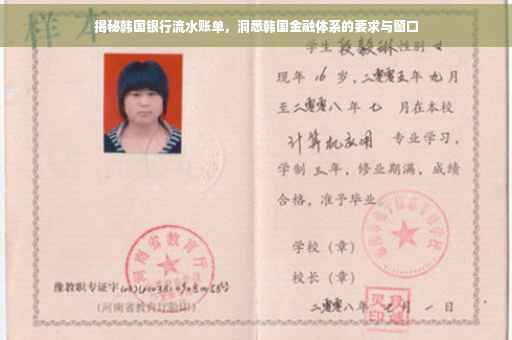 揭秘韩国银行流水账单，洞悉韩国金融体系的要求与窗口
样本
学生 段毅琳 性别 女
现年 16 岁，二零零五年 九月
至二零零八年 七 月在本校
计算机应用 专业学习，
学制 三年，修业期满，成绩
合格，准予毕业
学校（章）
校长（章）
河南省教育厅
豫教职专证字
（河南省教育厅验印）
二零零八年 七月 一日